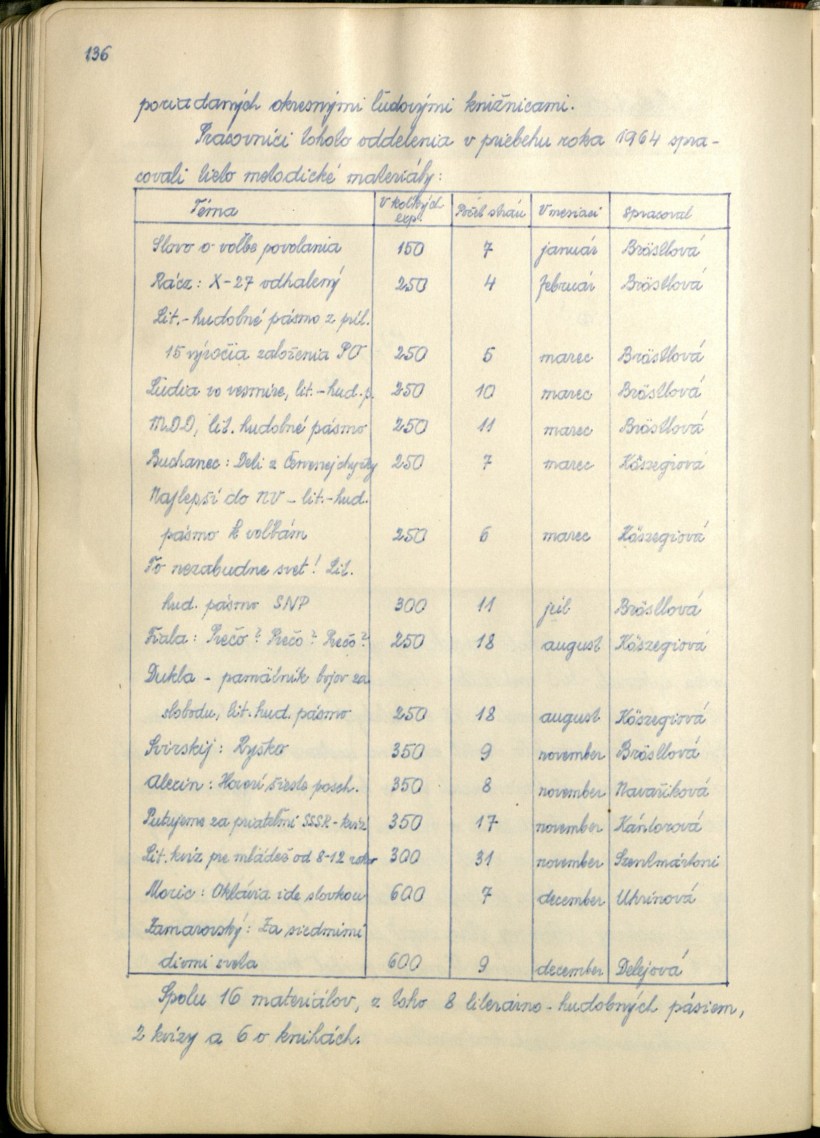 136
poriadaných okresnými ľudovými knižnicami.
Pracovníci tohoto oddelenia v priebehu roka 1964 spra-
covali tieto metodické materiály:
Téma V koľkých exp. Počet strán V mesiaci spracoval
Slovo o voľbe povolania 150 7 január Bröstlová
Rácz: X-27 odhalený 250 4 február Bröstlová
Lit.-hudobné pásmo z príl.
15 výročia založenia PO 250 5 marec Bröstlová
Ľudia vo vesmíre, lit.-hud. p. 250 10 marec Bröstlová
MDD, lit. hudobné pásmo 250 11 marec Bröstlová
Buchanec: Deti z Červenej chyžky 250 7 marec Köszegiová
Najlepší do NV - lit.-hud.
pásmo k voľbám 250 6 marec Köszegiová
To nezabudne svet! Lit.
hud. pásmo SNP 300 11 júl Bröstlová
Fiala: Prečo? Prečo? Prečo? 250 18 august Köszegiová
Dukla - pamätník bojov za
slobodu, lit. hud. pásmo 250 18 august Köszegiová
Svirskij: Rysko 350 9 november Bröstlová
Alecin: Hovorí šieste posch. 350 8 november Navaríková
Putujeme za priateľmi SSSR - kvíz 350 17 november Kántorová
Lit. kvíz pre mládež od 8-12 rokov 300 31 november Szentmártoni
Moric: Oktávia ide stovkou 600 7 december Uhrinová
Zamarovský: Za siedmimi
divmi sveta 600 9 december Delejová
Spolu 16 materiálov, z toho 8 literárno-hudobných pásiem,
2 kvízy a 6 o knihách.